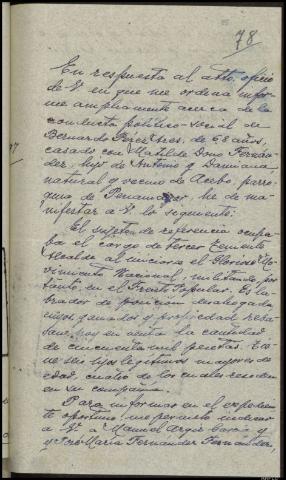 78
En respuesta al atto. oficio
de V. en que me ordena infor-
me ampliamente acerca de la
conducta político-social de
Bernardo Pérez Ares, de 68 años,
casado con Matilde Dono Fernán-
dez, hijo de Antonio y Damiana
natural y vecino de Acebo, parro-
quia de he de ma-
nifestar a V. lo siguiente:
El sujeto de referencia ocupa-
ba el cargo de tercer Teniente
Alcalde al iniciarse el Glorioso Mo-
vimiento Nacional, militando por
tanto en el Frente Popular. Es la-
brador de posición desahogada
cuyos ganados y propiedad reba-
sane hoy en venta la cantidad
de cincuenta mil pesetas. Tie-
ne seis hijos legítimos mayores de
edad, cuatro de los cuales residen
en su compañía.
Para informar en el expedien-
te oportuno, me permito indicar
a V. a Manuel García y
y José María Fernández Fernández,